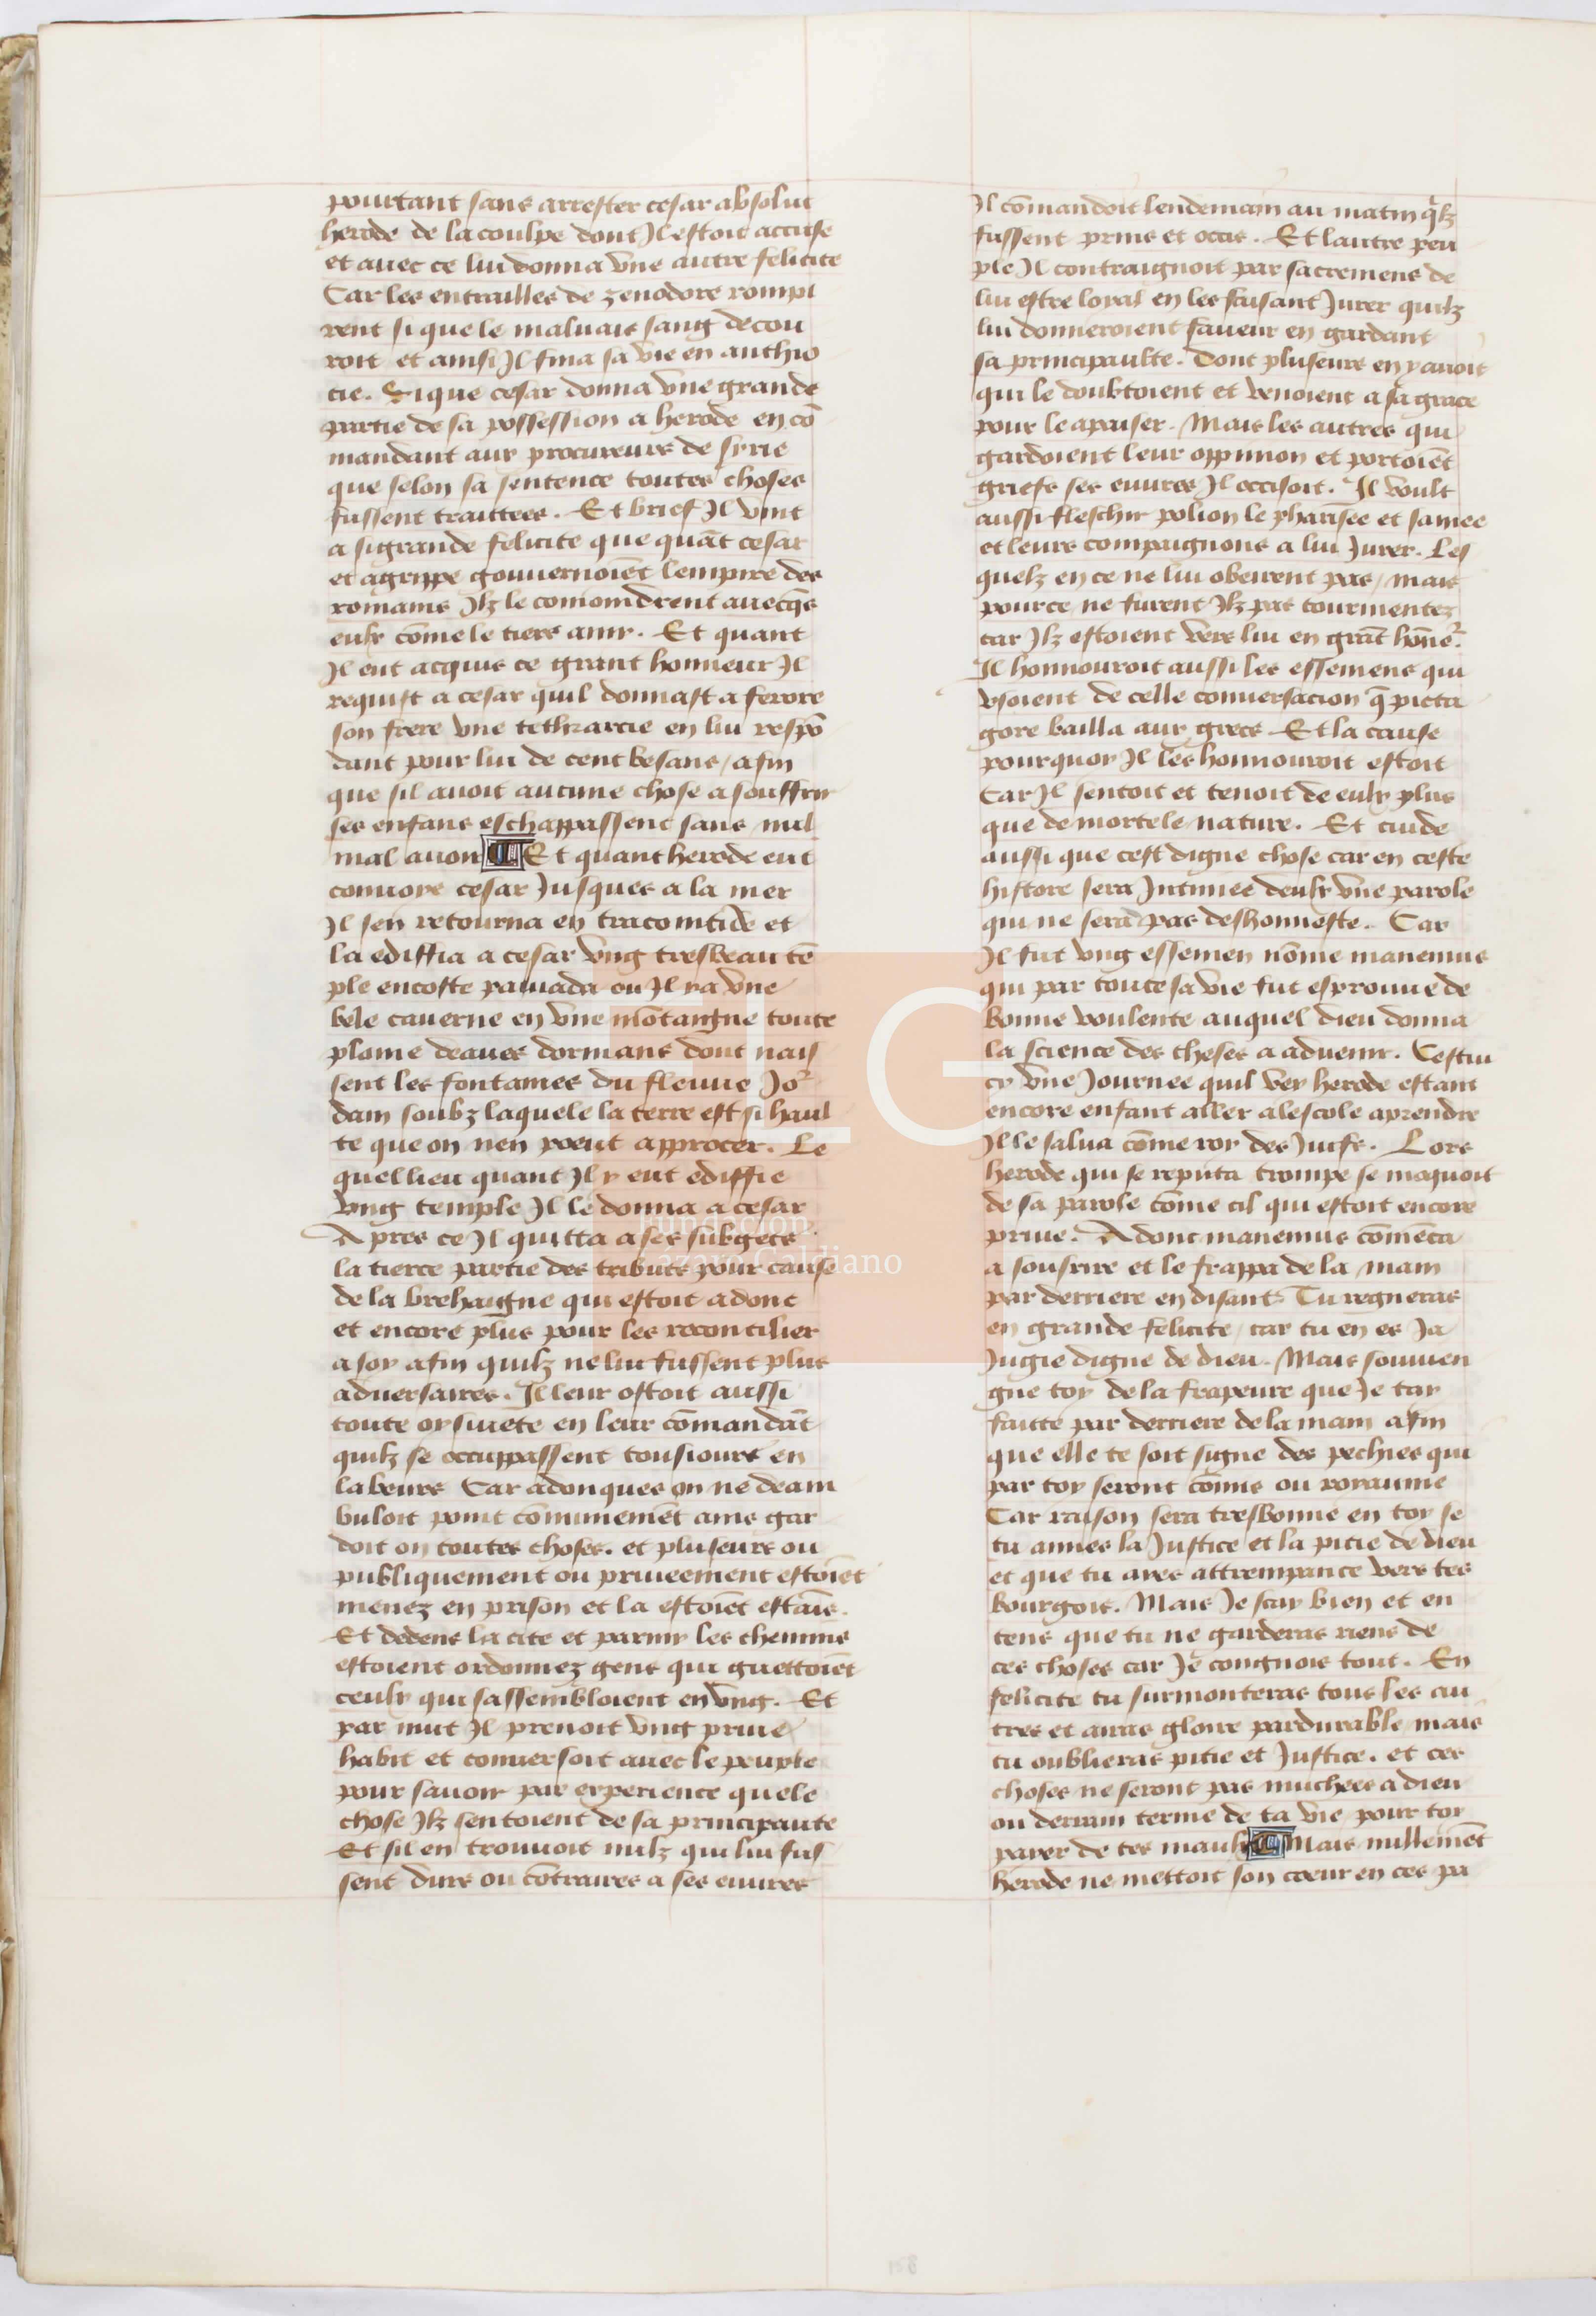 pourtant sans arrester cesar absolut
herode de la coulpe dont Il estoit accuse
et auec ce lui donna vne autre felicite
Car les entrailles de zenodore rompi
rent si que le maluais sang decou
roit et ainsi Il fina sa vie en anthio
cie. Si que cesar donna vne grande
partie de sa possession a herode en cō
mandant aux procureurs de syrie
que selon sa sentence toutes choses
fussent traittees. Et brief Il vint
a si grande felicite que quāt cesar
et agrippe gouuernoiēt lempire des
romains Ilz le comoindrent auecq̄s
eulx cōme le tiers amy. Et quant
Il eut acquis ce grant honneur Il
requist a cesar quil donnast a ferore
son frere vne tethrarcie en lui respō
dant pour lui de cent besans, afin
que sil auoit aucune chose a souffrir
ses enfans eschappassent sans nul
mal auoir Et quant herode eut
conuoye cesar Jusques a la mer
Il sen retourna en traconitide et
la ediffia a cesar vng tresbeau tē
ple encoste pamada ou Il ya vne
bele cauerne en vne mōtaigne toute
plaine deaues dormans dont nais
sent les fontaines du fleuue Jo²
dam soubz laquele la terre est si haul
te que on nen poeut approcer. Le
quel lieu quant Il y eut ediffie
vng temple Il le donna a cesar
Apres ce Il quitta a ses subgets
la tierce partie des tributs pour cause
de la brehaigne qui estoit adonc
et encore plus pour les reconcilier
a soy afin quilz ne lui fussent plus
aduersaires. Il leur ostoit aussi
toute oysiuete en leur cōmandāt
quilz se occuppassent tousiours en
labeurs Car adonques on ne deam
buloit point cōmunemēt ains gar
doit on toutes choses. et pluseurs ou
publiquement ou priueement estoiēt
menez en prison et la estoiēt estains.
Et dedens la cite et parmy les chemins
estoient ordonnez gens qui guettoiēt
ceulx qui sassembloient en vng. Et
par nuit Il prenoit vng priue
habit et conuersoit auec le peuple
pour sauoir par experience quele
chose Ilz sentoient de sa principaute
Et sil en trouuoit nulz qui lui fus
sent durs ou cōtraires a ses euures
Il cōmandoit lendemain au matin q̄lz
fussent prins et occis. Et lautre peu
ple Il contraignoit par sacremens de
lui estre loyal en les faisant Jurer quilz
lui donneroient faueur en gardant
sa principaulte. Dont pluseurs en y auoit
qui le doubtoient et venoient a sa grace
pour le apaiser. Mais les autres qui
gardoient leur oppinion et portoiēt
griefs ses euures Il occisoit. Il voult
aussi fleschir polion le pharisee et samee
et leurs compaignons a lui Jurer. Les
quelz en ce ne lui obeirent pas, mais
pource ne furent Ilz pas tourmentez
car Ilz estoient vers lui en grāt hōne².
Il honnouroit aussi les essemens qui
vsoient de celle conuersacion q̄ picta
gore bailla aux grecs Et la cause
pourquoy Il les honnouroit estoit
Car Il sentoit et tenoit de eulx plus
que de mortele nature. Et cuide
aussi que cest digne chose car en ceste
histore sera Intimee deulx vne parole
qui ne sera pas deshonneste. Car
Il fut vng essemen nōme manemus
qui par toute sa vie fut esprouue de
bonne voulente auquel dieu donna
la science des choses a aduenir. Cestui
cy vne Journee quil vey herode estant
encore enfant aller a lescole aprendre
Il le salua cōme roy des Juifs. Lors
herode qui se reputa trompe se moquoit
de sa parole cōme cil qui estoit encore
priue. Adont manemus cōmēca
a sousrire et le frappa de la main
par derriere en disant Tu regneras
en grande felicite, car tu en es Ja
Jugie digne de dieu. Mais souuien
gne toy de la frapeure que Je tay
faitte par derriere de la main afin
que elle te soit signe des pechies qui
par toy seront cōmis ou royaume
Car raison sera tresbonne en toy se
tu aimes la Justice et la pitie de dieu
et que tu ayes attrempance vers tes
bourgois. Mais Je scay bien et en
tens que tu ne garderas riens de
ces choses car Je congnois tout. En
felicite tu surmonteras tous les au
tres et auras gloire pardurable mais
tu oublieras pitie et Justice. et ces
choses ne seront pas muchees a dieu
ou derrain terme de ta vie pour toy
payer de tes maulx Mais nullemēt
herode ne mettoit son coeur en ces pa
FLG
Fundación
Lázaro Galdiano